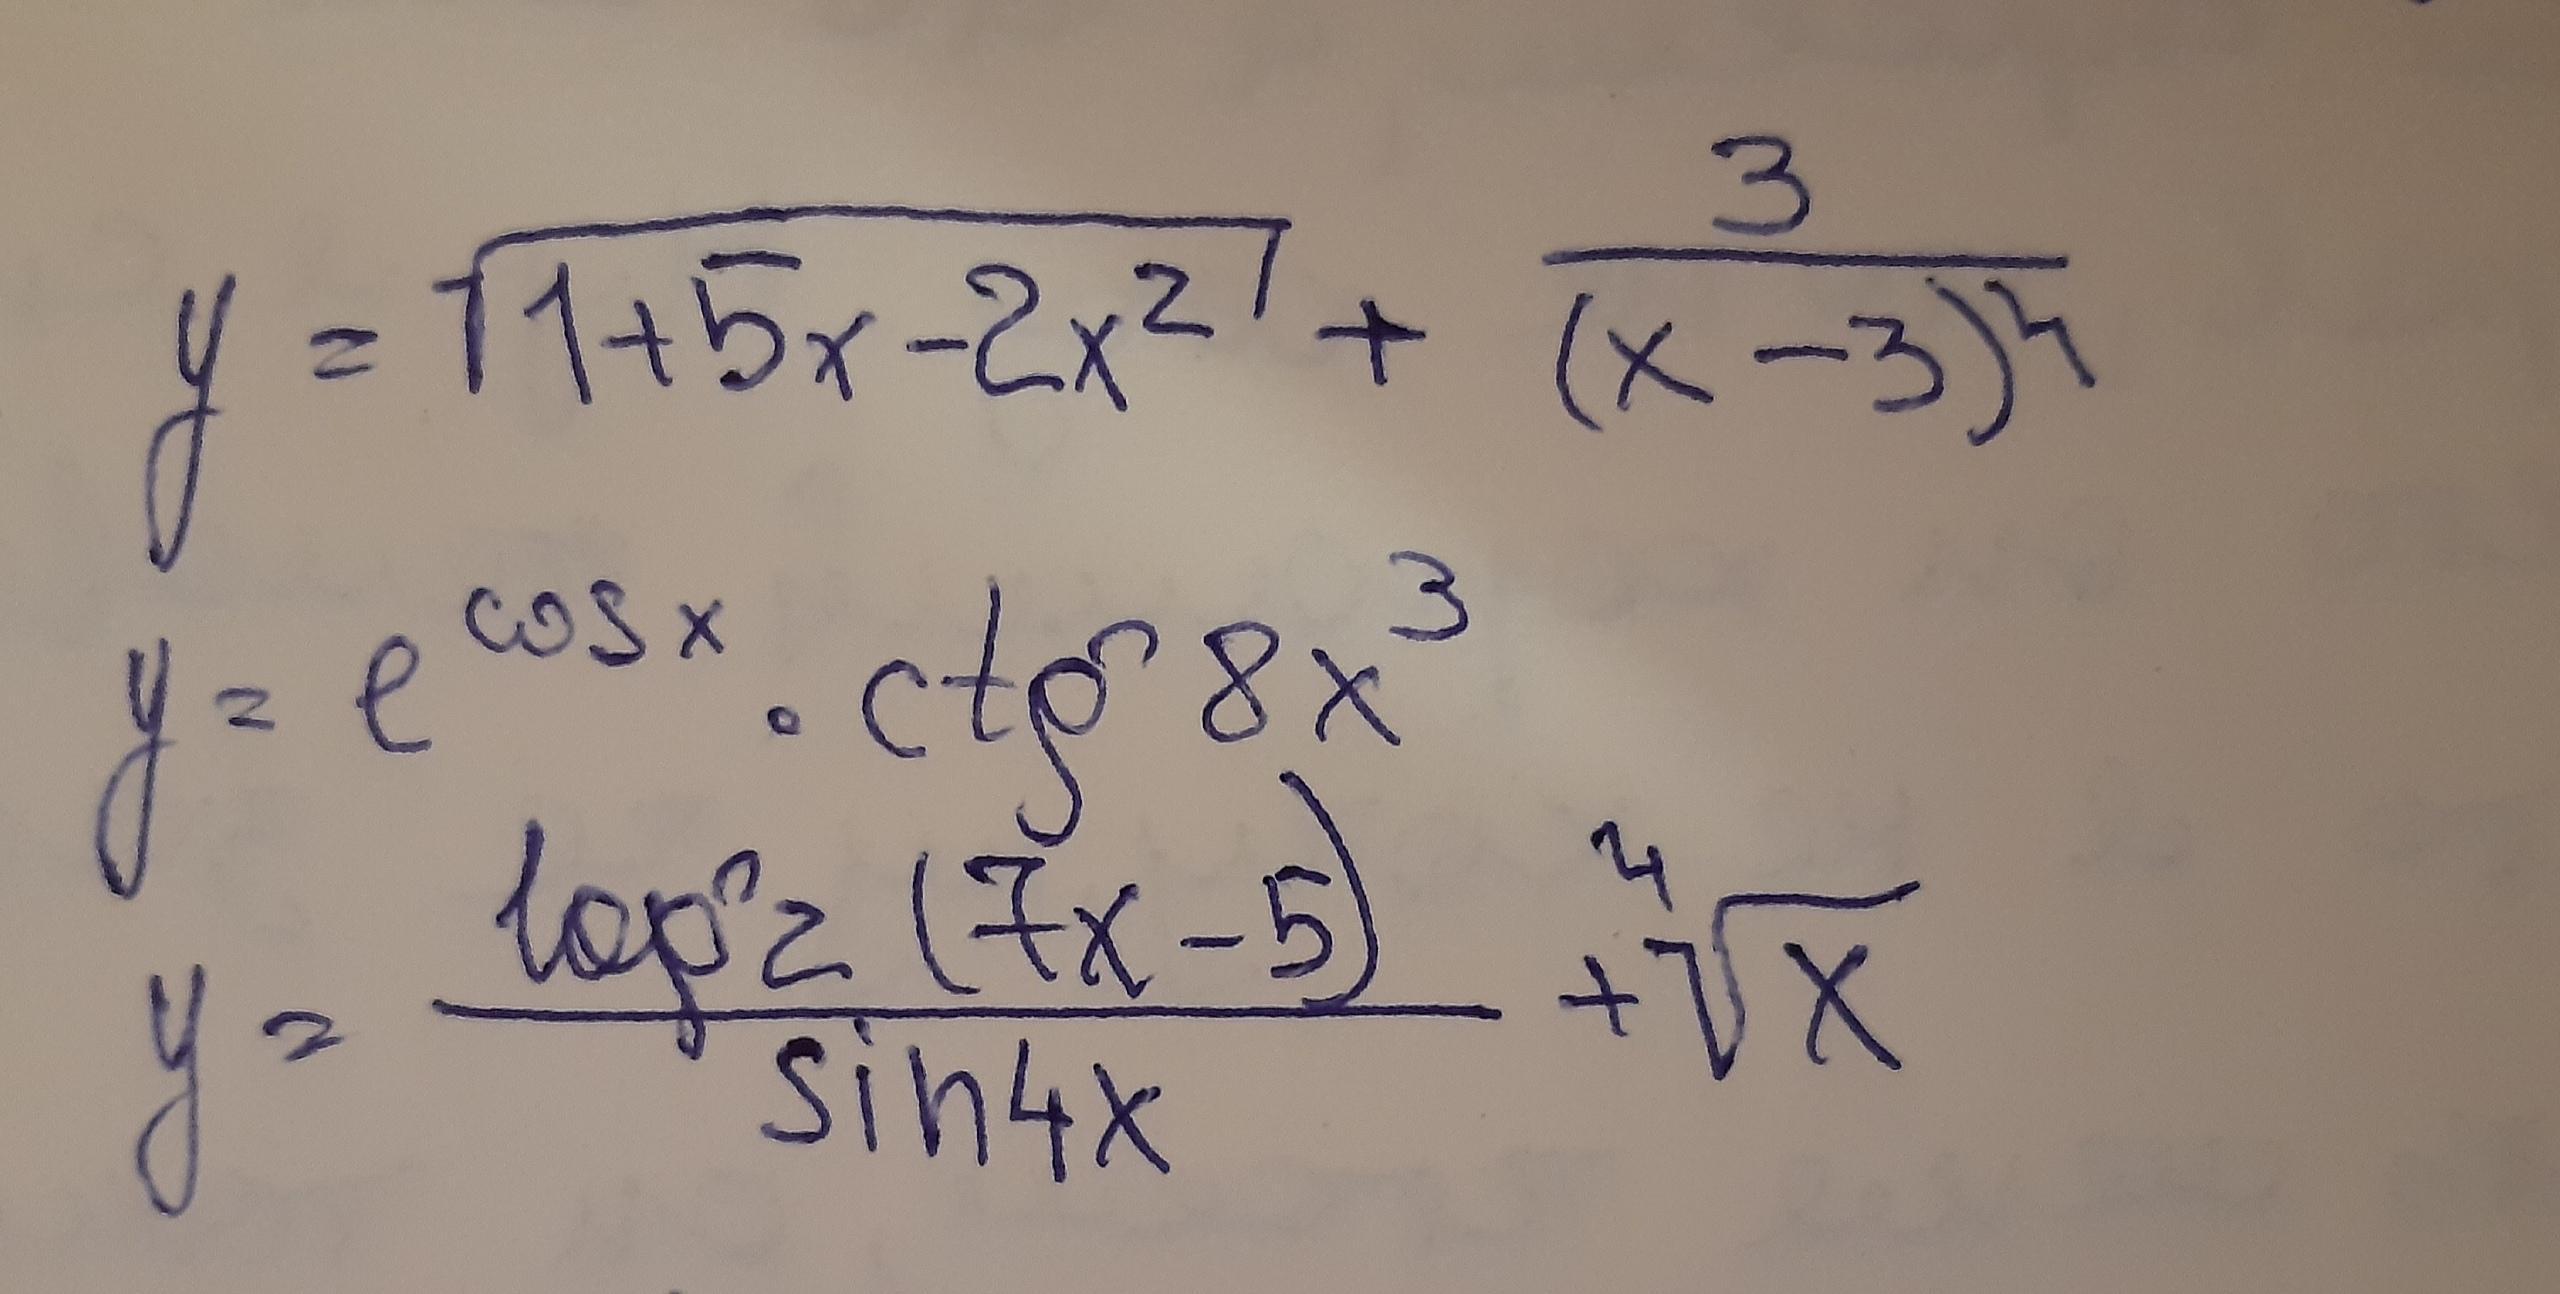 y = √(1+5x-2x²) + 3/(x-3)⁴
y = e^(cos x) · ctg 8x³
y = log₂(7x-5)/sin4x + ⁴√x